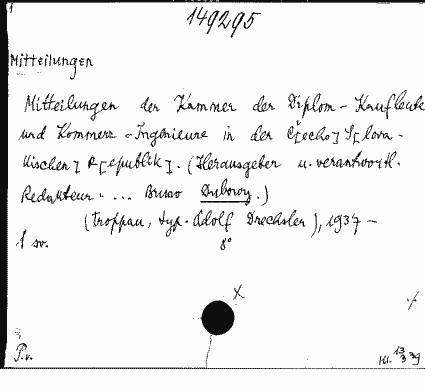 1
149295
Mitteilungen
Mitteilungen der Kammer der Diplom-Kaufleute
und Kommerz-Ingenieure in der Č[echo] S[lova-
kischen] R[epublik]. (Herausgeber u. verantwortl.
Redakteur: ... Bruno Dubovy.)
(Troppau, typ. Adolf Drechsler), 1937 –
1 sv. 8°
X
P.v.
Kl. 13/3 39